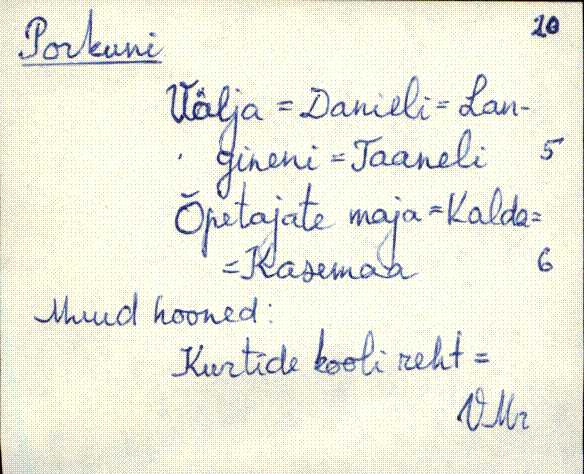 20
Porkuni
Välja = Danieli = Lan-
gineni = Taaneli 5
Õpetajate maja = Kalda=
= Kasemaa 6
Muud hooned:
Kurtide kooli reht =
VMr